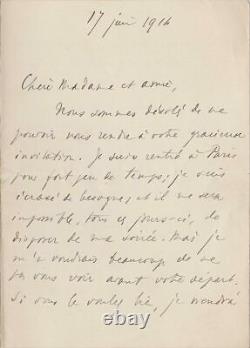 17 juin 1916
Chère Madame et amie,
Nous sommes désolés de ne
pouvoir nous rendre à votre gracieuse
invitation. Je suis rentré à Paris
pour fort peu de temps; je suis
écrasé de besogne; et il me sera
impossible, tous ces jours-ci, de
disposer de ma soirée. Mais je
m'en voudrais beaucoup de ne
pas vous voir avant votre départ.
Si vous le voulez bien, je viendrai
© thebritishcentre.co.uk